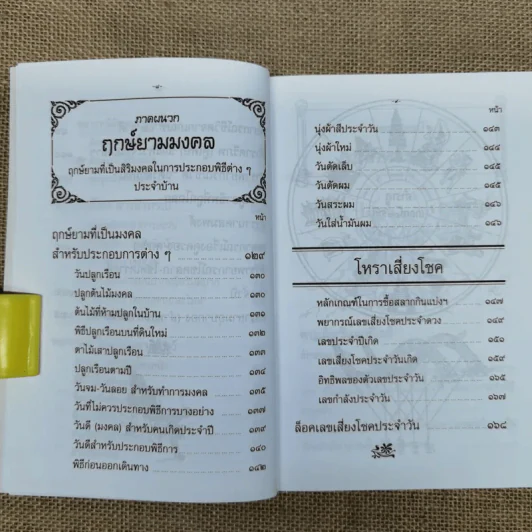 ภาคผนวก
ฤกษ์ยามมงคล
ฤกษ์ยามที่เป็นสิริมงคลในการประกอบพิธีต่าง ๆ
ประจำบ้าน
หน้า
ฤกษ์ยามที่เป็นมงคล
สำหรับประกอบการต่าง ๆ ๑๒๙
วันปลูกเรือน ๑๓๐
ปลูกต้นไม้มงคล ๑๓๐
ต้นไม้ที่ห้ามปลูกในบ้าน ๑๓๐
พิธีปลูกเรือนบนที่ดินใหม่ ๑๓๒
ตาไม้เสาปลูกเรือน ๑๓๓
ปลูกเรือนตามปี ๑๓๔
วันจม-วันลอย สำหรับทำการมงคล ๑๓๕
วันที่ไม่ควรประกอบพิธีการบางอย่าง ๑๓๗
วันดี (มงคล) สำหรับคนเกิดประจำปี ๑๓๙
วันดีสำหรับประกอบพิธีการ ๑๔๐
พิธีก่อนออกเดินทาง ๑๔๒
หน้า
นุ่งผ้าสีประจำวัน ๑๔๓
นุ่งผ้าใหม่ ๑๔๔
วันตัดเล็บ ๑๔๕
วันตัดผม ๑๔๕
วันสระผม ๑๔๖
วันใส่น้ำมันผม ๑๔๖
โหราเสี่ยงโชค
หลักเกณฑ์ในการซื้อสลากกินแบ่งฯ ๑๔๗
พยากรณ์เลขเสี่ยงโชคประจำดวง ๑๔๙
เลขประจำปีเกิด ๑๕๐
เลขเสี่ยงโชคประจำวันเกิด ๑๕๙
อิทธิพลของตัวเลขประจำวัน ๑๖๕
เลขกำลังประจำวัน ๑๖๗
ล็อคเลขเสี่ยงโชคประจำวัน ๑๖๘